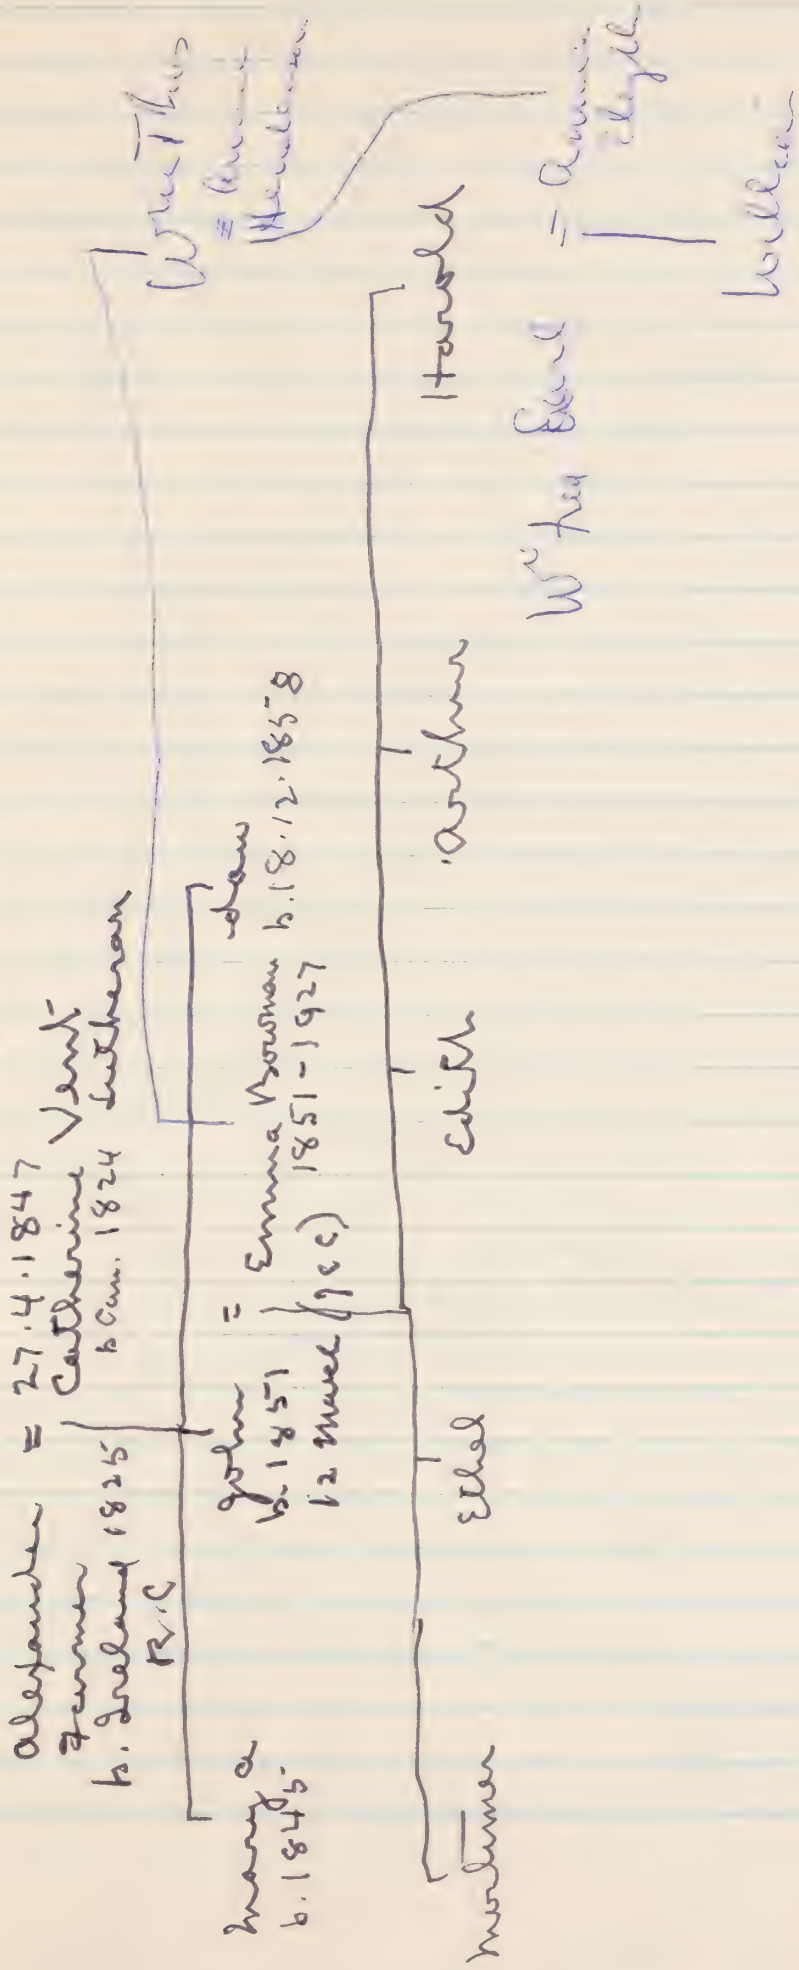 Alexander = 27.4.1847
Farmer Catherine Vent
b. Ireland 1825 b Can. 1824 Lutheran
R.C
Mary A
b. 1845
John = Emma Bowman
b. 1851 1851-1927
12 March
b. 18.12.1858
Mortimer
Ethel
Edith
Arthur
Harold
Wm Thos
=
Wm =
William